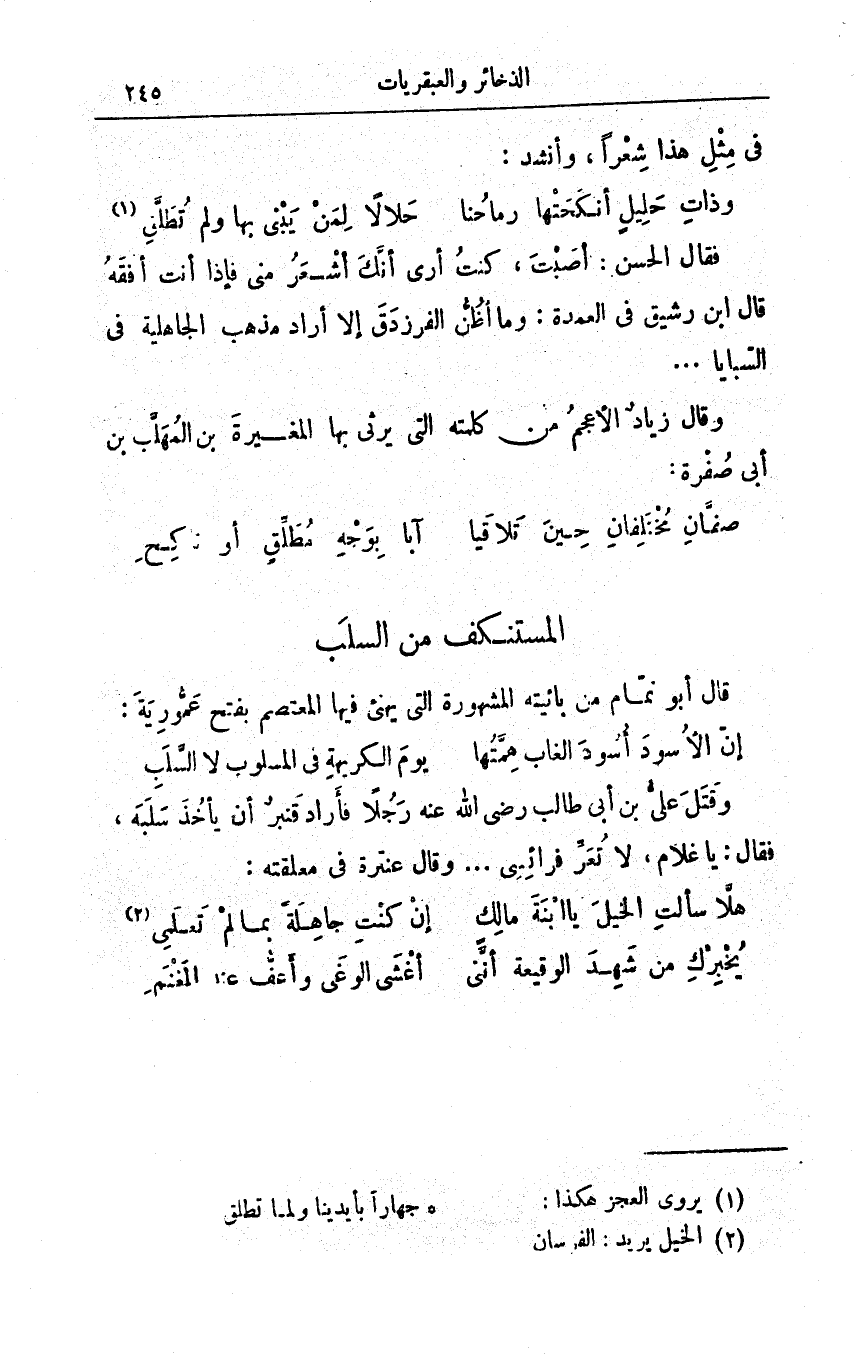 الذخائر والعبقريات
٢٤٥
فى مِثْلِ هذا شِعْراً ، وأنشد :
وذاتِ حَلِيلٍ أنكَحَتْها رماحُنا حَلالًا لِمَنْ يَبْنى بها ولم تُطَلَّقِ (١)
فقال الحسن : أصَبْتَ ، كنتُ أرى أنَّكَ أشْعَرُ منى فإذا أنت أفقَهُ
قال ابن رشيق فى العمدة : وما أظُنُّ الفرزدَقَ إلا أراد مذهب الجاهلية فى
السَّبايا ...
وقال زيادٌ الأعجمُ من كلمته التى يرثى بها المغيرةَ بن المُهَلَّب بن
أبى صُفْرة :
صفَّانِ مُخْتَلِفانِ حِينَ تَلاقَيا آبا بِوَجْهِ مُطَلِّقٍ أو ناكِحِ
المستنكف من السلَب
قال أبو تمّام من بائيته المشهورة التى يهنئ فيها المعتصم بفتح عَمُّورِيَةَ :
إنّ الأُسودَ أُسودَ الغاب هِمَّتُها يومَ الكريهةِ فى المسلوب لا السَّلَبِ
وقَتَلَ علىُّ بن أبى طالب رضى الله عنه رَجُلًا فأراد قَنبرٌ أن يأخُذَ سَلَبَه ،
فقال : يا غلام ، لا تُعَرِّ فرائِسِى ... وقال عنترة فى معلقته :
هلَّا سألتِ الخيلَ يا ابْنَةَ مالِكٍ إنْ كنْتِ جاهِلَةً بمالمْ تَعلَمِى (٢)
يُخْبِرْكِ من شَهِدَ الوقيعة أنَّنى أغْشَى الوغَى وأَعفُّ عند المَغْنَمِ
(١) يروى العجز هكذا : * جهاراً بأيدينا ولما تطلق
(٢) الخيل يريد : الفرسان